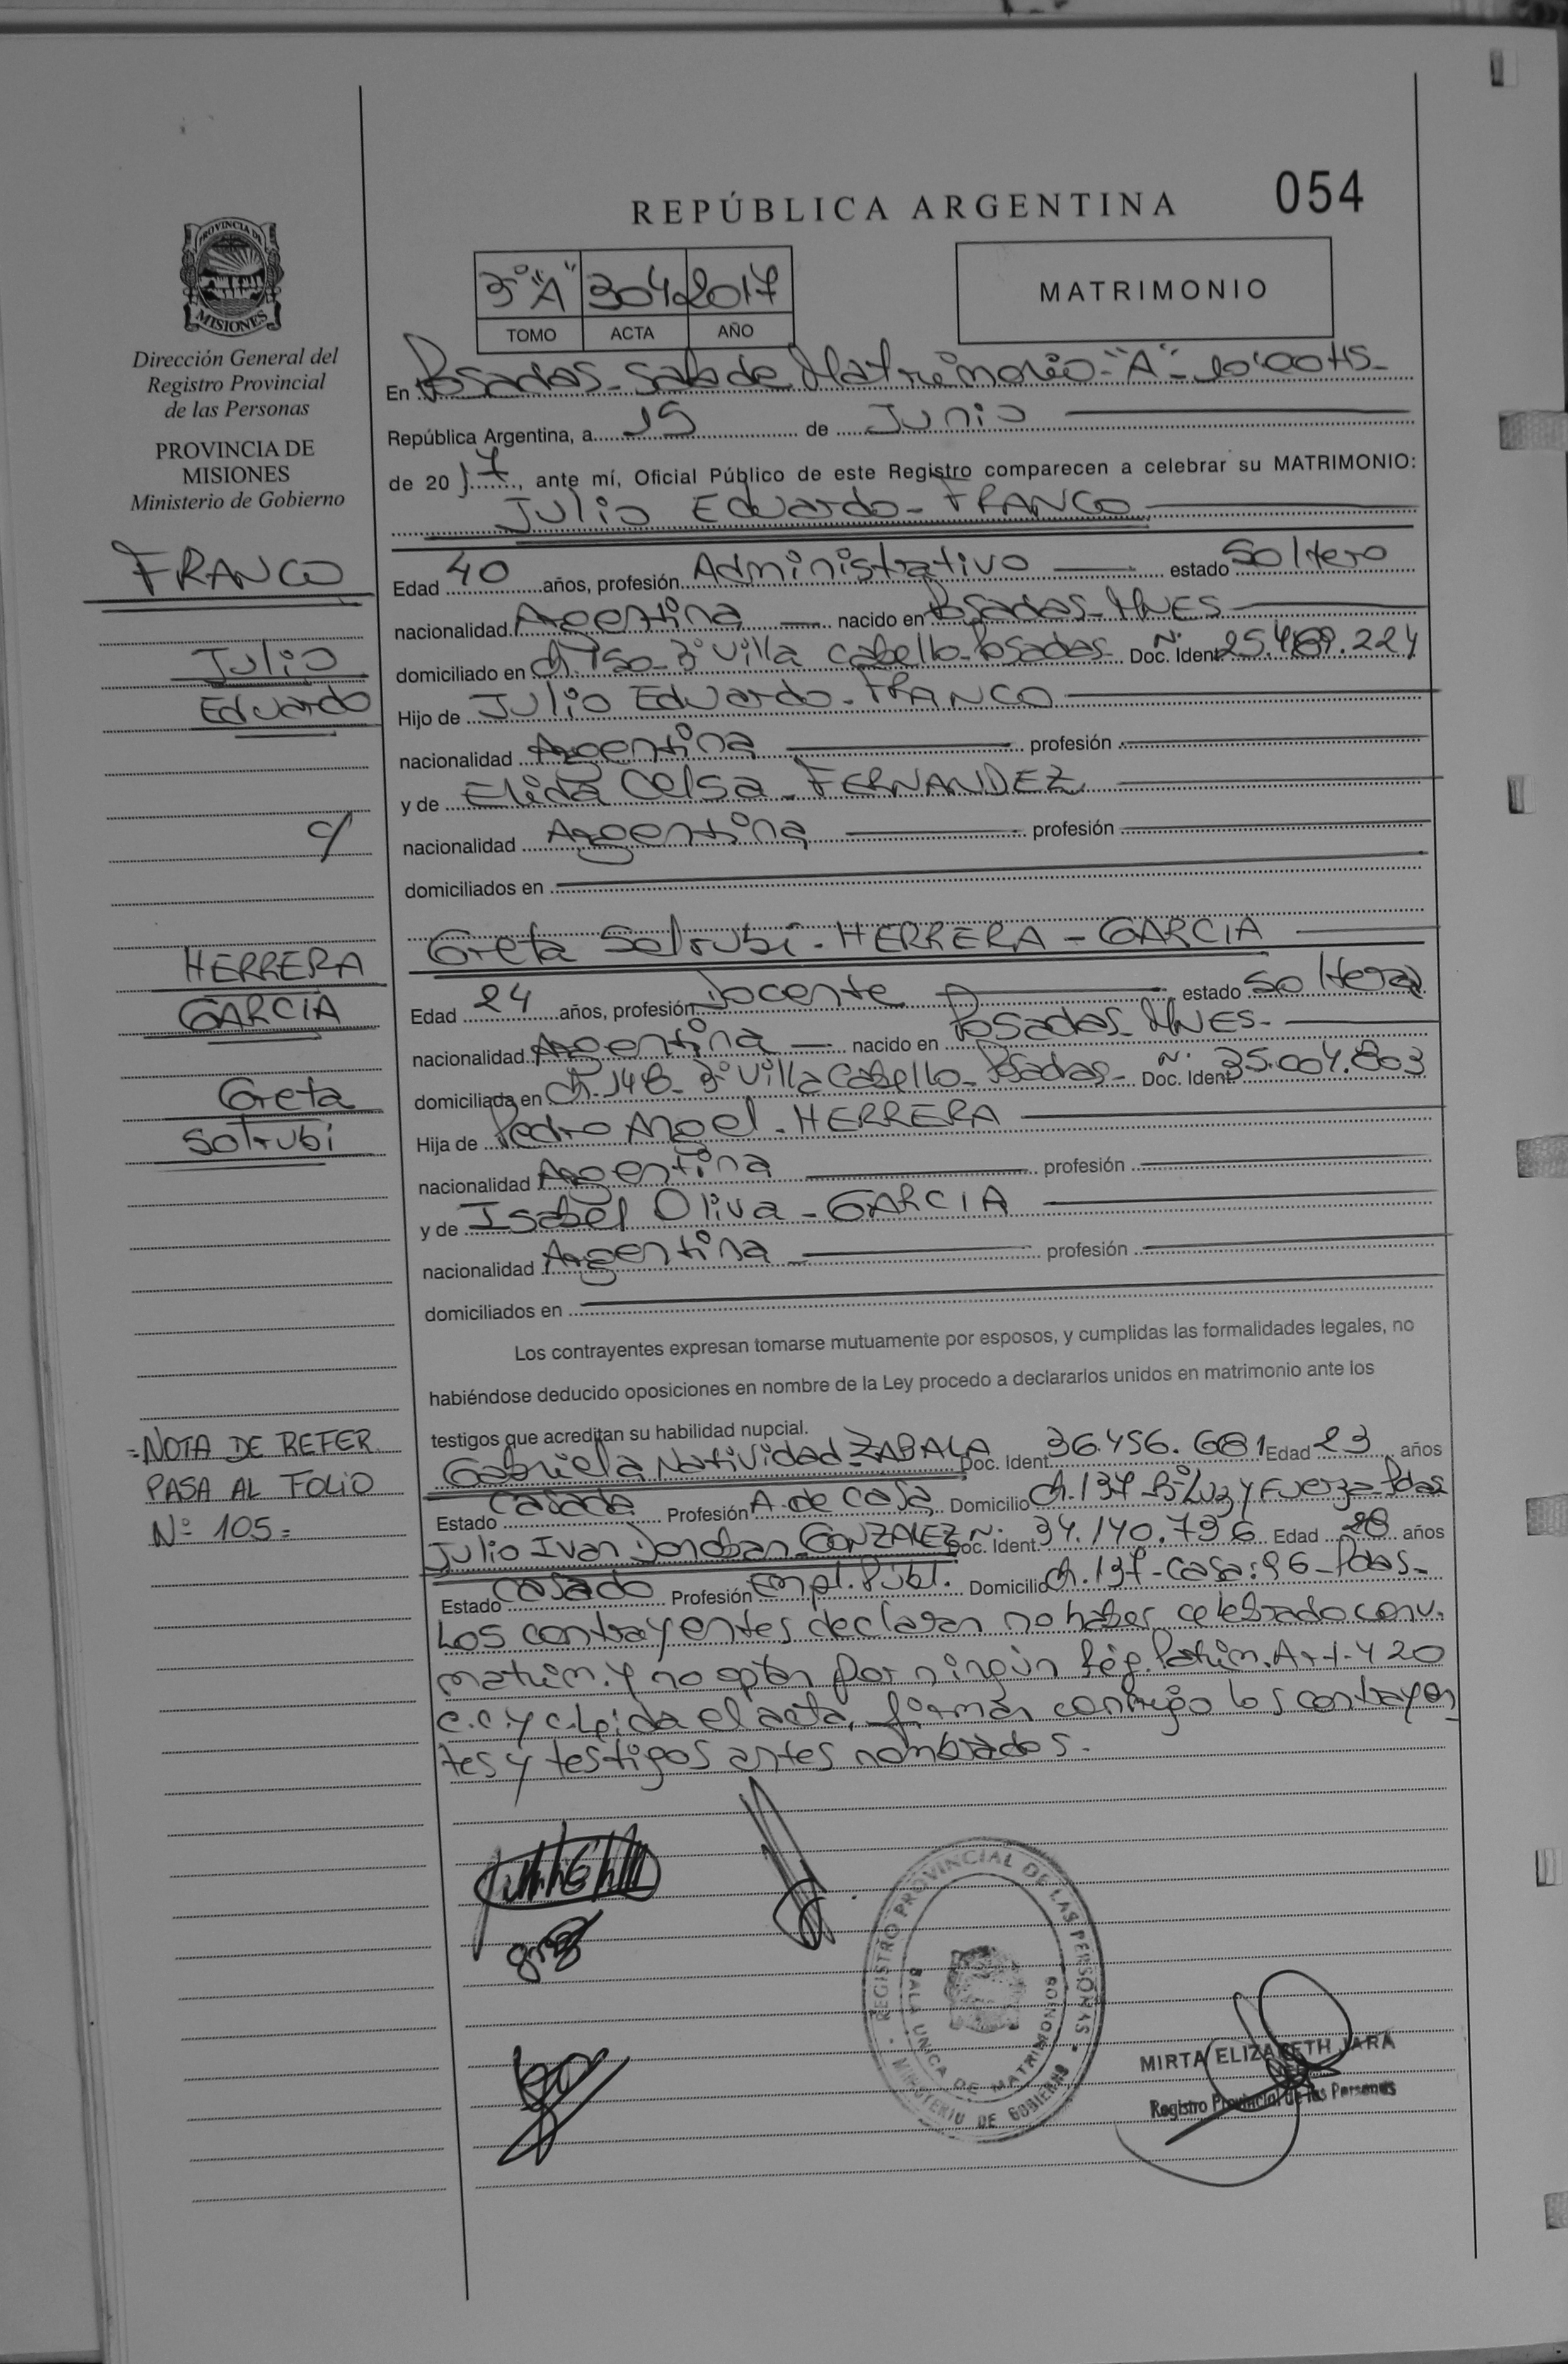 REPÚBLICA ARGENTINA 054
PROVINCIA DE
MISIONES
Dirección General del
Registro Provincial
de las Personas
PROVINCIA DE
MISIONES
Ministerio de Gobierno
3º "A" 304 2017
TOMO ACTA AÑO
MATRIMONIO
En Posadas - Sala de Matrimonio - "A" - 10:00 HS -
República Argentina, a 15 de Junio
de 2017, ante mí, Oficial Público de este Registro comparecen a celebrar su MATRIMONIO:
Julio Eduardo - FRANCO
FRANCO
Julio
Eduardo
Edad 40 años, profesión Administrativo estado Soltero
nacionalidad Argentina nacido en Posadas - MNES
domiciliado en Ch. 150 - Bº Villa Cabello - Posadas - Doc. Ident. Nº 25.469.224
Hijo de Julio Eduardo - FRANCO
nacionalidad Argentina profesión
y de Elida Celsa - FERNANDEZ
nacionalidad Argentina profesión
c/
domiciliados en
Greta Solrubi - HERRERA - GARCIA
HERRERA
GARCIA
Greta
Solrubi
Edad 24 años, profesión Docente estado Soltera
nacionalidad Argentina nacido en Posadas - MNES -
domiciliada en Ch. 148 - Bº Villa Cabello - Posadas - Doc. Ident. Nº 35.004.803
Hija de Pedro Angel - HERRERA
nacionalidad Argentina profesión
y de Isabel Oliva - GARCIA
nacionalidad Argentina profesión
domiciliados en
Los contrayentes expresan tomarse mutuamente por esposos, y cumplidas las formalidades legales, no
habiéndose deducido oposiciones en nombre de la Ley procedo a declararlos unidos en matrimonio ante los
testigos que acreditan su habilidad nupcial.
= NOTA DE REFER.
PASA AL FOLIO
Nº 105 =
Gabriela Natividad - ZABALA Doc. Ident. 36.456.681 Edad 23 años
Estado Casada Profesión A. de casa Domicilio Ch. 137 - Bº Luz y Fuerza - Pdas
Julio Ivan Jonoban - GONZALEZ Doc. Ident. Nº 34.140.736 Edad 28 años
Estado Casado Profesión Empl. Públ. Domicilio Ch. 137 - Casa: 96 - Pdas -
Los contrayentes declaran no haber celebrado conv.
matrim. y no optan por ningún Rég. Patrim. Art. 420
C.C. y C. Leída el acta, firman conmigo los contrayen
tes y testigos antes nombrados.
REGISTRO PROVINCIAL DE LAS PERSONAS
SALA UNICA DE MATRIMONIOS
MINISTERIO DE GOBIERNO
MIRTA ELIZABETH JARA
Registro Provincial de las Personas